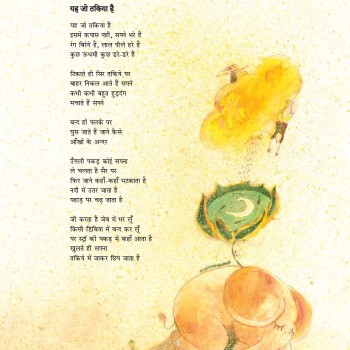 यह जो तकिया है
यह जो तकिया है
इसमें कपास नहीं, सपने भरे हैं
रंग बिरंगे हैं, लाल पीले हरे हैं
कुछ ऊधमी कुछ डरे-डरे हैं
टिकाते ही सिर तकिये पर
बाहर निकल आते हैं सपने
कभी कभी बहुत हुड़दंग
मचाते हैं सपने
बन्द हों पलकें पर
घुस जाते हैं जाने कैसे
आँखों के अन्दर
उँगली पकड़ कोई सपना
ले चलता है सैर पर
फिर जाने कहाँ-कहाँ भटकाता है
नदी में उतर जाता है
पहाड़ पर चढ़ जाता है
जी करता है जेब में भर लूँ
किसी डिबिया में बन्द कर लूँ
पर स्ट्रॉ की पकड़ में कहाँ आता है
खुलते ही सपना
तकिये में जाकर छिप जाता है